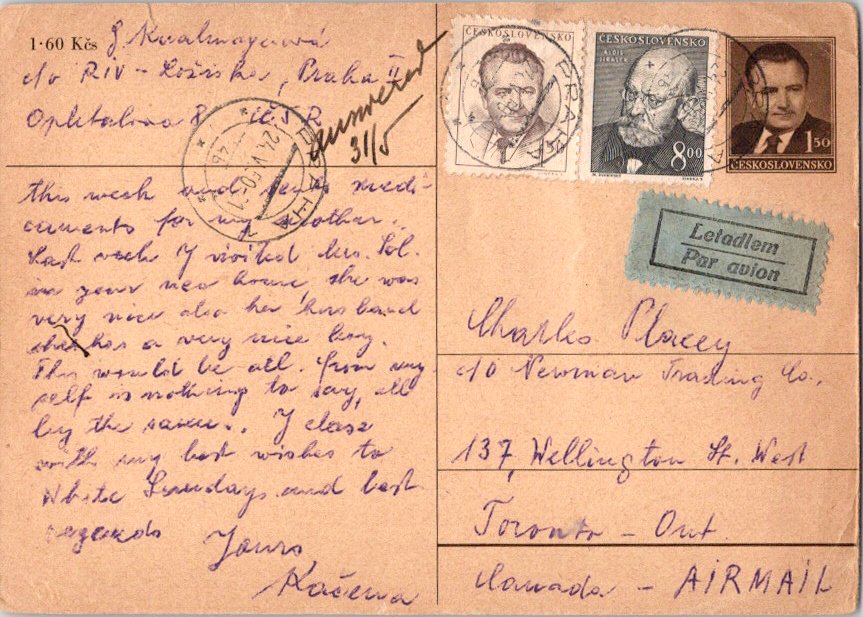 1·60 Kčs
c/o RIV - Ložiska, Praha II
Opletalova 8 ČSR
answered
31/5
PRAHA
24.VI.50-11
ČESKOSLOVENSKO
ČESKOSLOVENSKO
ALOIS JIRÁSEK
8 00
1 50
ČESKOSLOVENSKO
Letadlem
Par avion
this week and send medi-
caments for my mother.
Last week I visited
in your nice house, she was
very nice also her husband
she has a very nice boy.
This would be all. from my
self is nothing to say, all
by the same. I close
with my best wishes to
White Sundays and best
regards
Yours
Kačena
Charles Placey
c/o Newman Trading Co.,
137, Wellington St. West
Toronto - Ont.
Canada - AIRMAIL